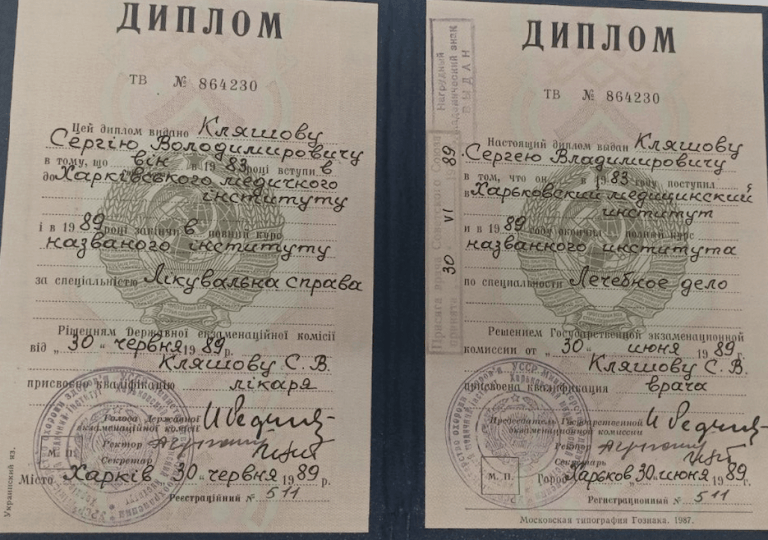 ДИПЛОМ
ТВ № 864230
Цей диплом видано Кляшову
Сергію Володимировичу
в тому, що він в 1983 році вступив
до Харківського медичного
інституту
і в 1989 році закінчив повний курс
названого інституту
за спеціальністю Лікувальна справа
Рішенням Державної екзаменаційної комісії
від „30“ червня 1989 р.
Кляшову С. В.
присвоєно кваліфікацію лікаря
Голова Державної
екзаменаційної комісії
Ректор
Секретар
М. П.
Місто Харків 30 червня 1989 р.
Реєстраційний № 511
Украинский яз.
ДИПЛОМ
ТВ № 864230
Нагрудный
академический знак
ВЫДАН
Присяга врача Советского Союза
принята 30 VI 1989
Настоящий диплом выдан Кляшову
Сергею Владимировичу
в том, что он в 1983 году поступил
в Харьковский медицинский
институт
и в 1989 году окончил полный курс
названного института
по специальности Лечебное дело
Решением Государственной экзаменационной
комиссии от „30“ июня 1989 г.
Кляшову С. В.
присвоена квалификация врача
Председатель Государственной
экзаменационной комиссии
Ректор
Секретарь
М. П.
Город Харьков 30 июня 1989 г.
Регистрационный № 511
Московская типография Гознака. 1987.